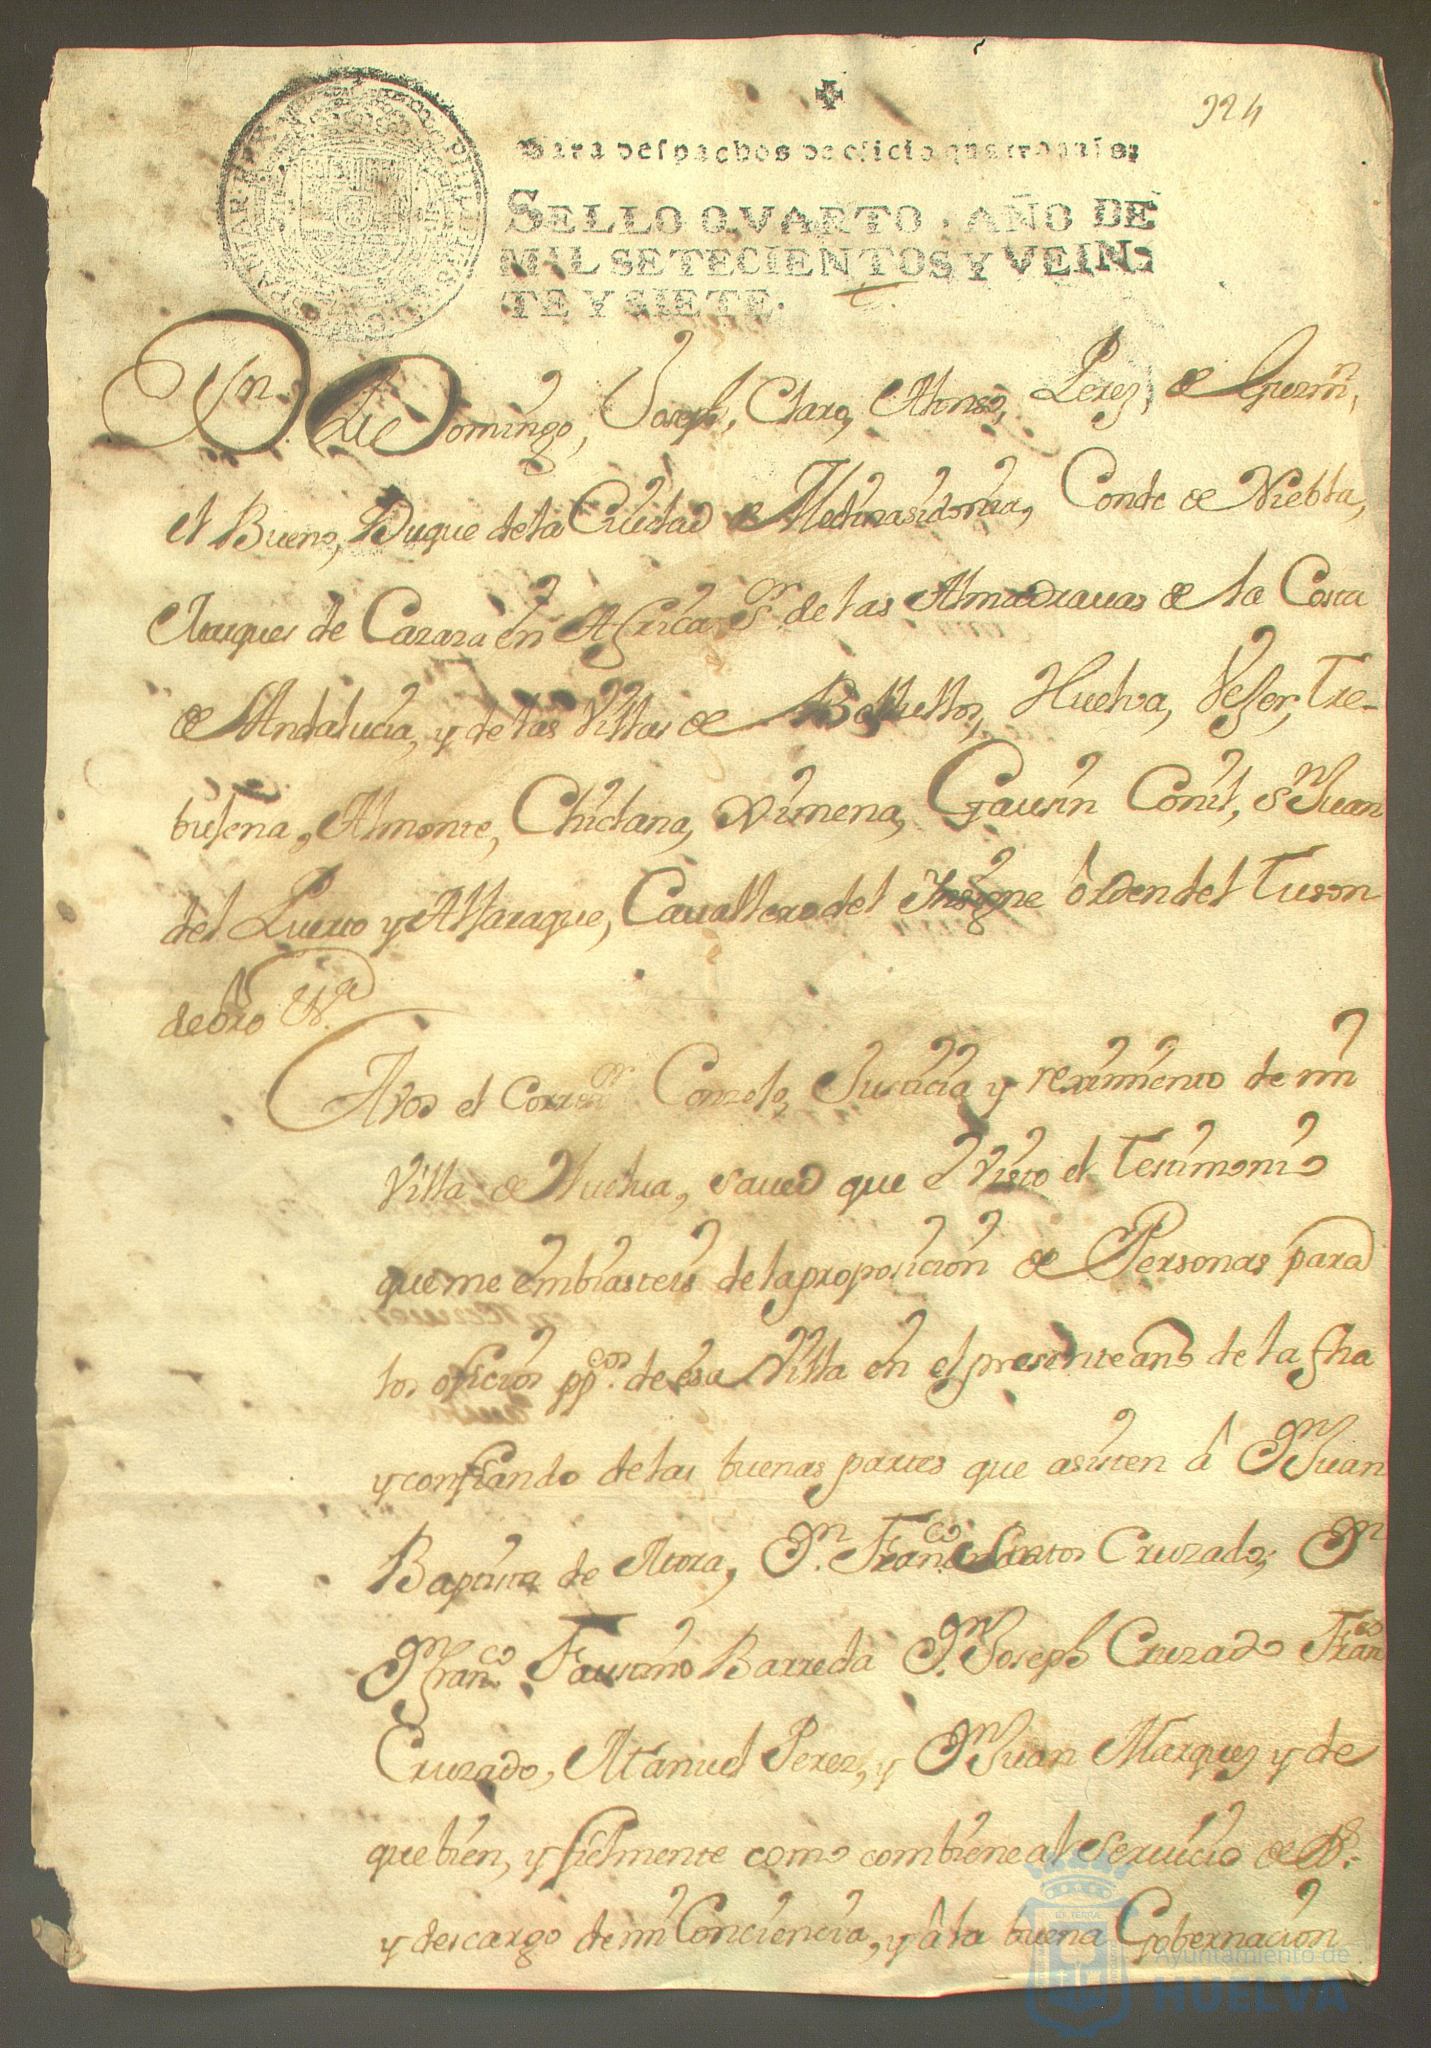 924
Para despachos de oficio quatro mrs.
SELLO QVARTO, AÑO DE
MIL SETECIENTOS Y VEIN-
TE Y SIETE.
Dn. Domingo, Joseph, Claro, Alonso, Perez, de Guzmn,
el Bueno, Duque de la Ciudad de Medinasidonia, Conde de Niebla,
Marques de Cazaza en Africa Sor. de las Almadrauas de la Costa
de Andalucia, y de las Villas de Bollullos, Huelva, Vejer, Tre-
bujena, Almonte, Chiclana, Ximena, Gausin Conil, Sn Juan
del Puerto y Alfaraque, Cauallero del Insigne orden del Tuson
de oro &a.
A vos el Corregor Consejo, Justicia y reximiento de mi
Villa de Huelva, saued que e visto el Testimonio
que me embiasteis de la proposicion de Personas para
los oficios ppcos. de esa Villa en el presente año de la fha
y confiando de las buenas partes que asisten â Dn Juan
Baptista de Mora, Dn. Franco. Santos Cruzado, Dn
Dn franco. Faustino Barreda Dn. Joseph Cruzado Franco
Cruzado, Manuel Perez, y Dn Juan Marquez y de
que bien, y fielmente como combiene al seruicio de Ds.
y descargo de mi Conciencia, y â la buena Gobernacion
Ayuntamiento de
HUELVA